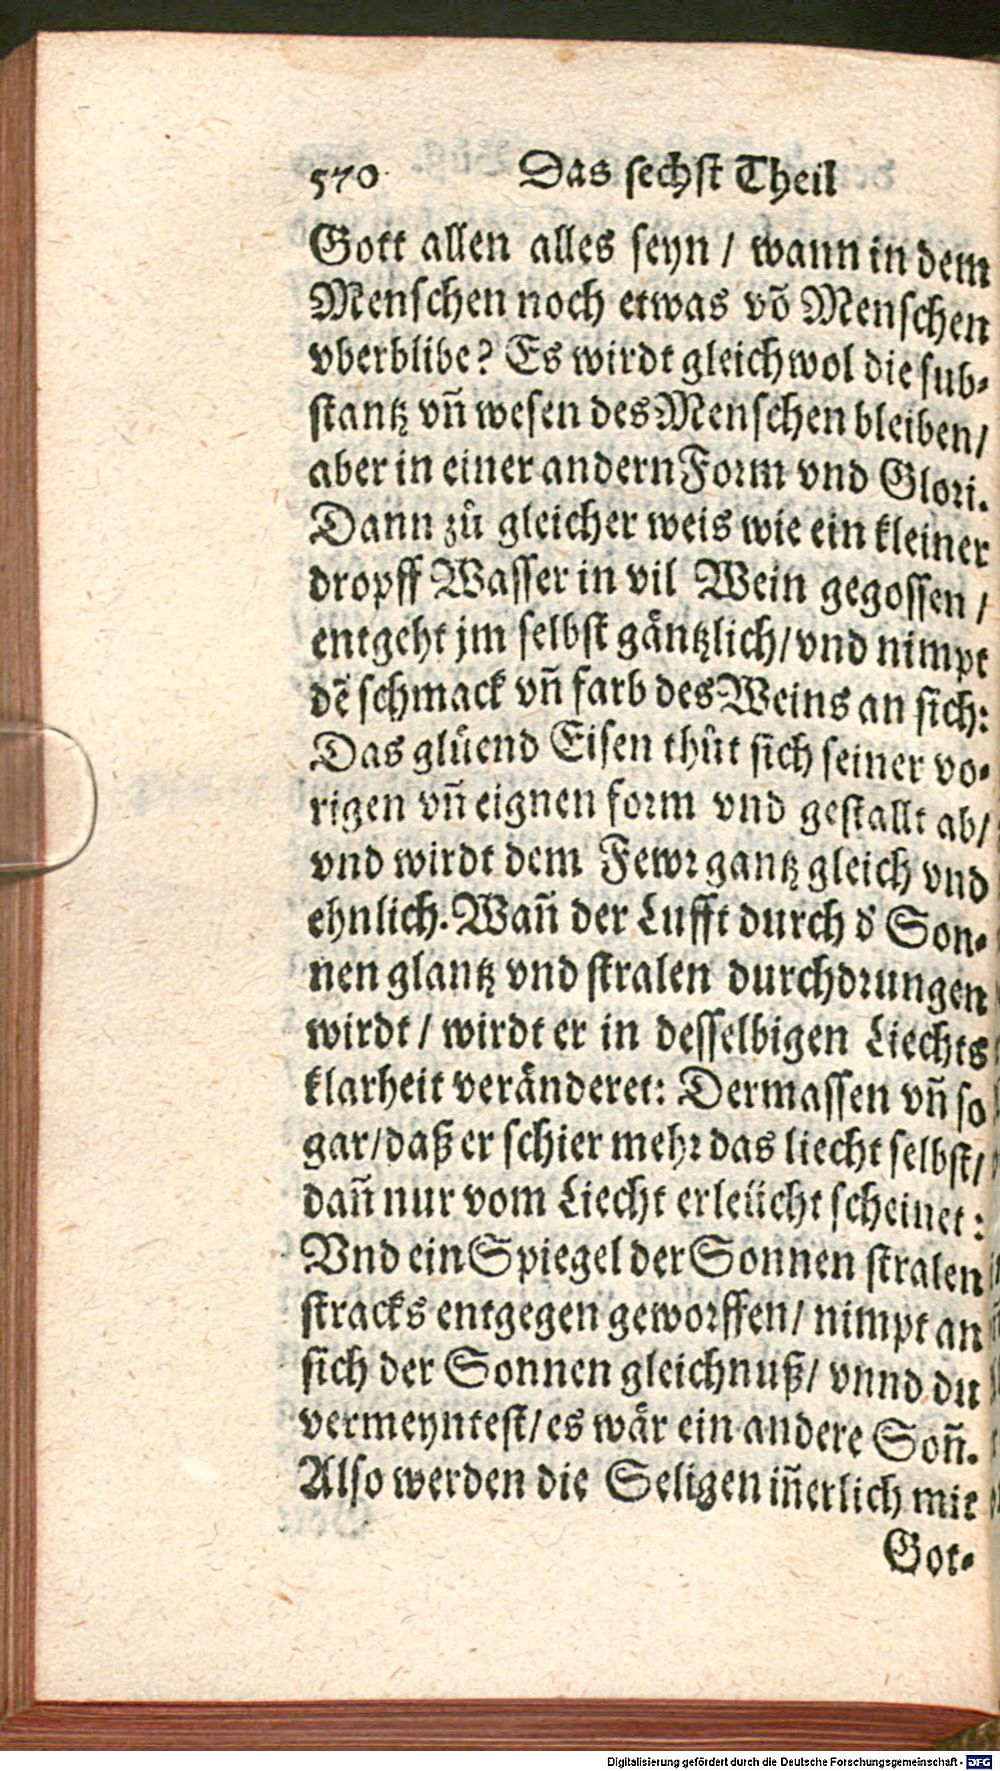 570 Das sechst Theil
Gott allen alles seyn / wann in dem
Menschen noch etwas võ Menschen
vberblibe? Es wirdt gleichwol die sub-
stantz vñ wesen des Menschen bleiben /
aber in einer andern Form vnd Glori.
Dann zů gleicher weis wie ein kleiner
dropff Wasser in vil Wein gegossen /
entgeht jm selbst gäntzlich / vnd nimpt
dẽ schmack vñ farb des Weins an sich:
Das glüend Eisen thůt sich seiner vo-
rigen vñ eignen form vnd gestallt ab /
vnd wirdt dem Fewr gantz gleich vnd
ehnlich. Wañ der Lufft durch d' Son-
nen glantz vnd stralen durchdrungen
wirdt / wirdt er in desselbigen Liechts
klarheit veränderet: Dermassen vñ so
gar / daß er schier mehr das liecht selbst /
dañ nur vom Liecht erleücht scheinet:
Vnd ein Spiegel der Sonnen stralen
stracks entgegen geworffen / nimpt an
sich der Sonnen gleichnuß / vnnd du
vermeyntest / es wär ein andere Soñ.
Also werden die Seligen iñerlich mit
Got-
Digitalisierung gefördert durch die Deutsche Forschungsgemeinschaft - DFG